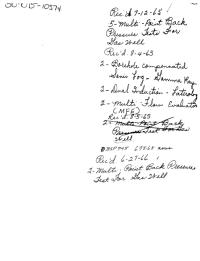 30-015-10374
Rec'd 7-12-65 !
5-Multi-Point Back
Pressure Tests For
Gas Well
Rec'd 9-4-65
2-Borehole compensated
Sonic Log-Gamma Ray
2-Dual Induction-Laterolog
2-Multi-Flow Evaluator
(MFE)
Rec'd 8-5-65
2-Multi-Point Back
Pressure Test For Gas
Well
Rec'd 6-27-66 !
2-Multi, Point Back Pressure
Test For Gas Well